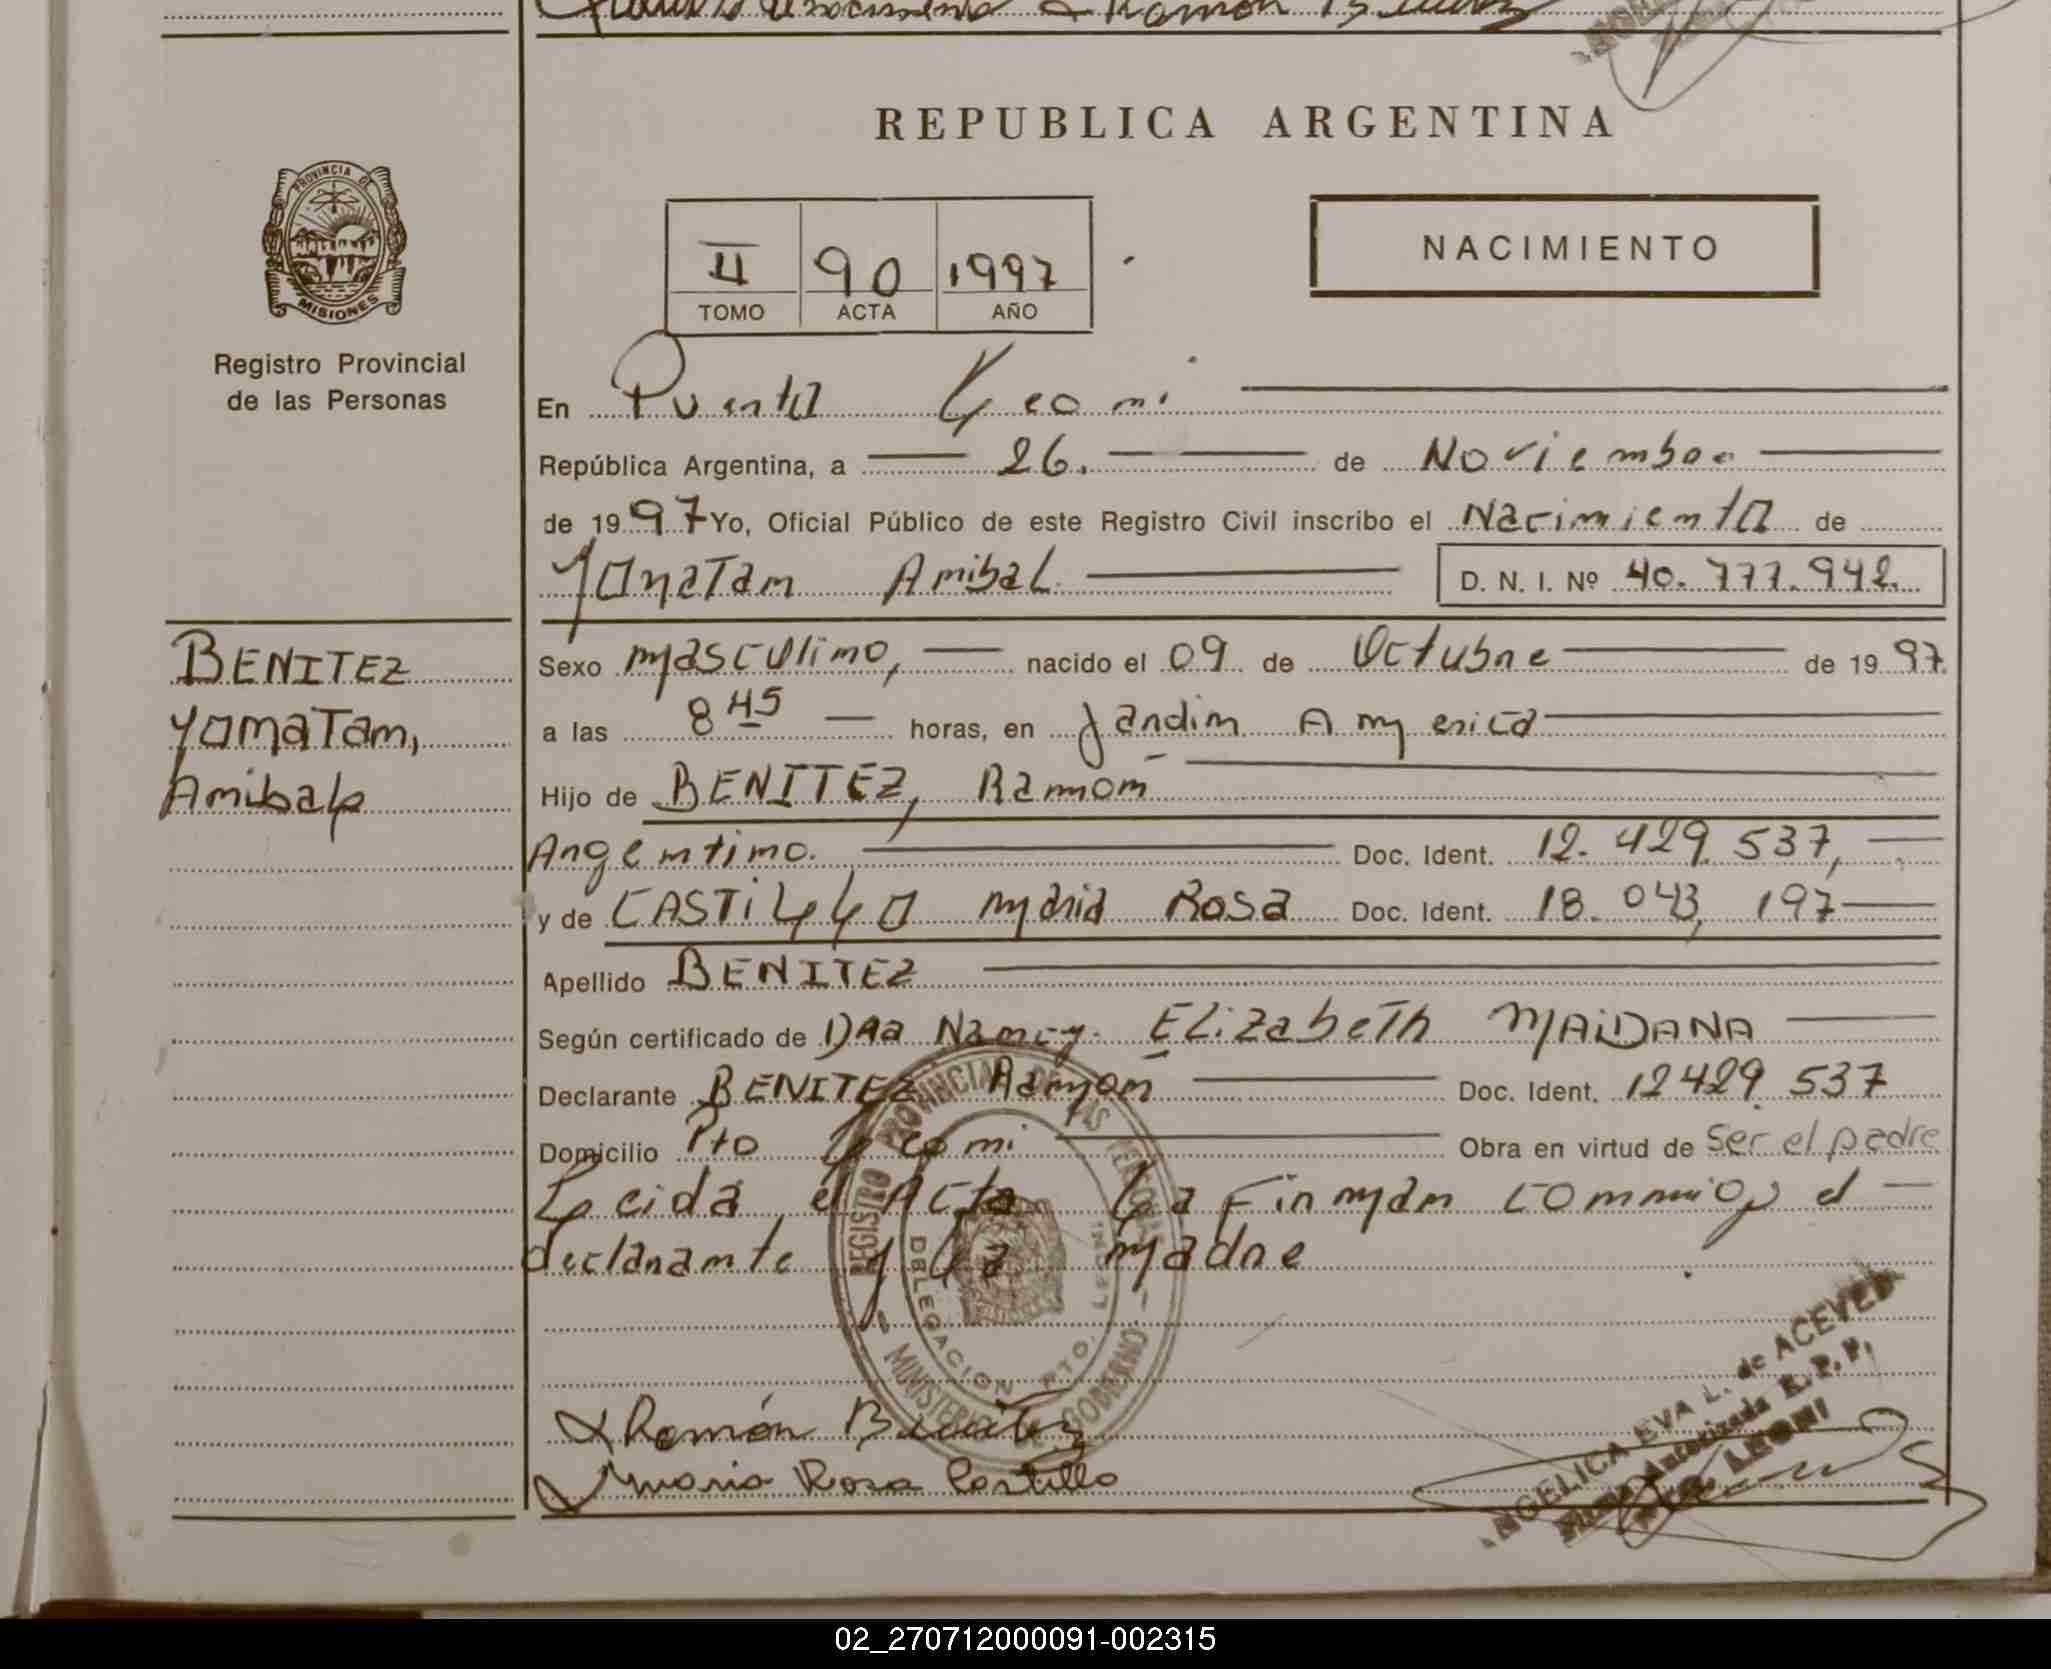 REPUBLICA ARGENTINA
PROVINCIA DE
MISIONES
Registro Provincial
de las Personas
II 90 1997
TOMO ACTA AÑO
NACIMIENTO
En Puerto Leoni
República Argentina, a 26. de Noviembre
de 1997 Yo, Oficial Público de este Registro Civil inscribo el Nacimiento de
Yonatam Anibal D. N. I. Nº 40.777.942.
BENITEZ
Yonatam,
Anibal
Sexo masculino, nacido el 09 de Octubre de 1997.
a las 8 45 horas, en Jardin America
Hijo de BENITEZ, Ramon
Argentino. Doc. Ident. 12.429.537,
y de CASTILLO Maria Rosa Doc. Ident. 18.043,197
Apellido BENITEZ
Según certificado de Dra Nancy Elizabeth MAIDANA
Declarante BENITEZ Ramon Doc. Ident. 12429.537
Domicilio Pto Leoni Obra en virtud de Ser el padre
Leida el Acta La Firman conmigo el
declarante y La madre
REGISTRO PROVINCIAL DE LAS PERSONAS
DELEGACION PTO. LEONI
MINISTERIO DE GOBIERNO
Ramón Benitez
Maria Rosa Castillo
ANGELICA EVA L. de ACEVEDO
Firma Autorizada R. P. P.
PTO. LEONI
02_270712000091-002315